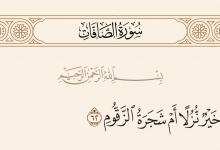 سُورَةُ الصَّافَّاتِ
بِسْمِ اللَّهِ الرَّحْمَٰنِ الرَّحِيمِ
خَيْرٌ نُّزُلًا أَمْ شَجَرَةُ الزَّقُّومِ ٦٢